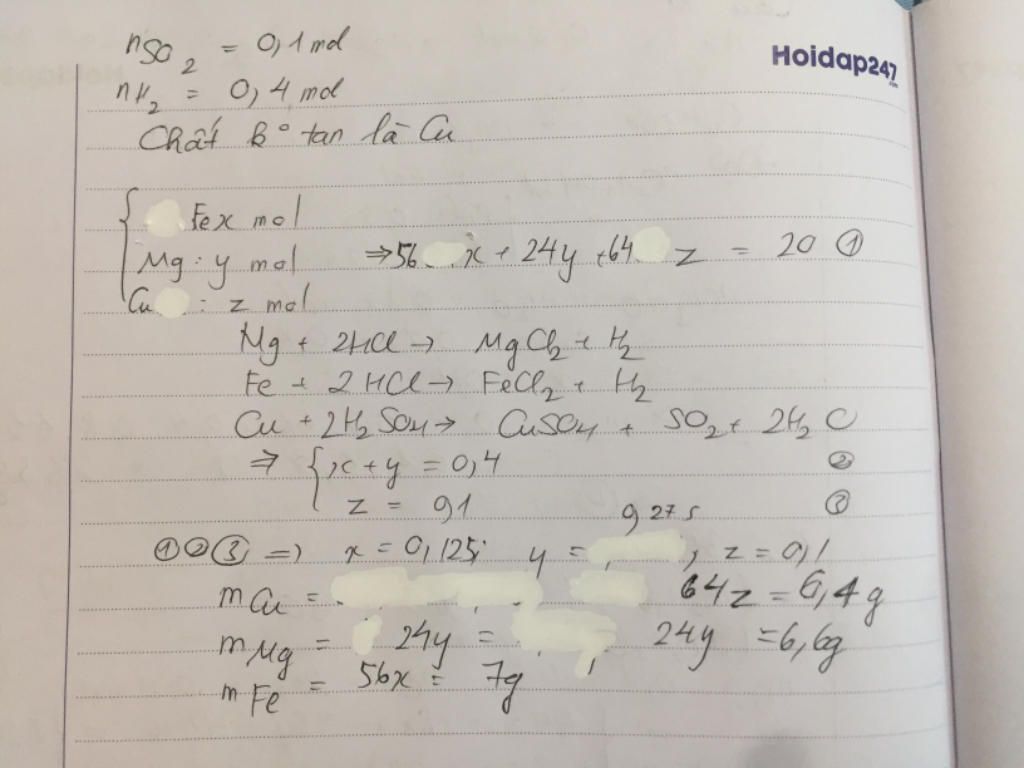 nSO2 = 0,1 mol
Hoidap247
.com
nH2 = 0,4 mol
Chất k° tan là Cu
Fe x mol
Mg : y mol ⇒ 56 x + 24y + 64 z = 20 ①
Cu : z mol
Mg + 2HCl → MgCl2 + H2
Fe + 2HCl → FeCl2 + H2
Cu + 2H2SO4 → CuSO4 + SO2 + 2H2O
⇒ { x + y = 0,4 ②
z = 0,1 ③
0,275
①②③ => x = 0,125; y = , z = 0,1
mCu = 64z = 6,4g
mMg = 24y = 24y = 6,6g
mFe = 56x = 7g